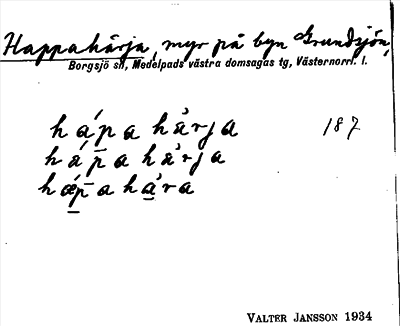 Happahärja, myr på byn Grundsjön,
Borgsjö sn, Medelpads västra domsagas tg, Västernorrl. l.
hápa hàrja 187
háp̄a hàrja
hǽp̄a hàra
VALTER JANSSON 1934